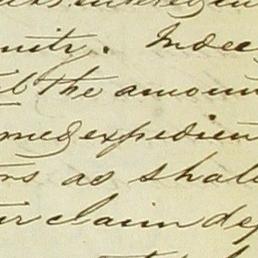 nity. Indee
the amoun
med expedien
rs as shal
ir claim de